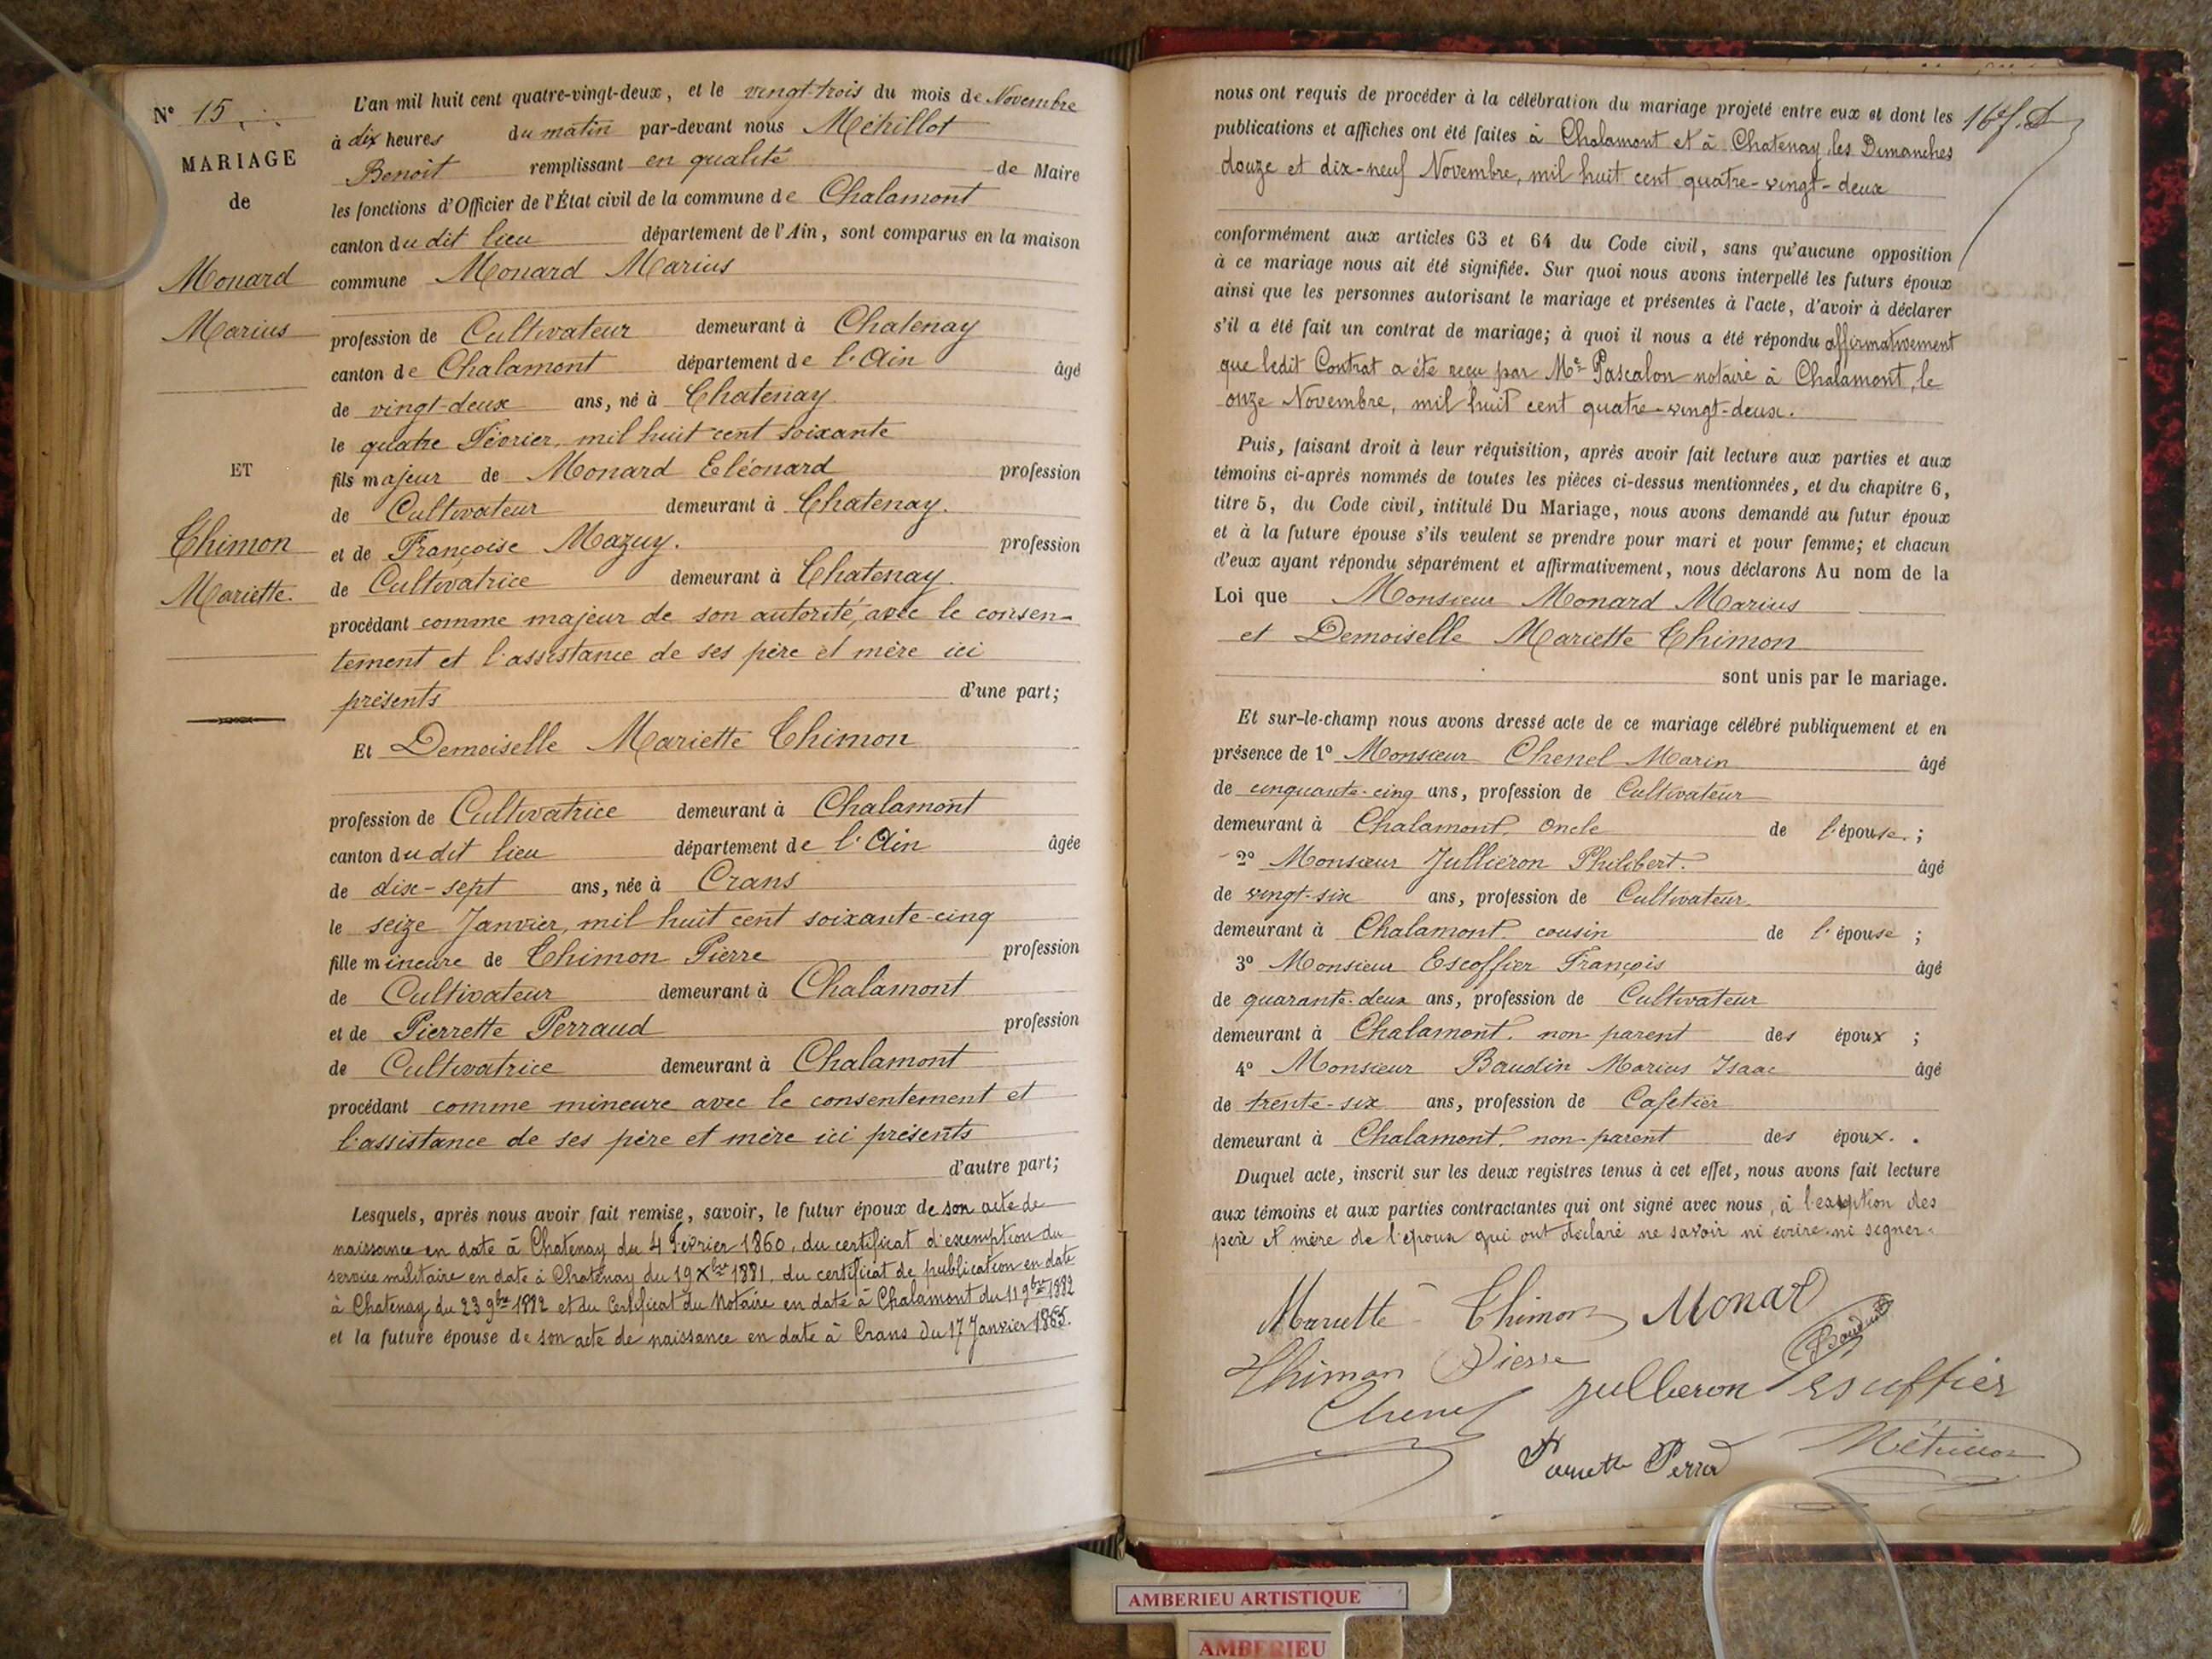 N° 15
MARIAGE
de
Monard
Marius
ET
Thimon
Mariette.
L'an mil huit cent quatre-vingt-deux, et le vingt-trois du mois de Novembre
à dix heures du matin par-devant nous Métrillot
Benoit remplissant en qualité de Maire
les fonctions d'Officier de l'État civil de la commune de Chalamont
canton du dit lieu département de l'Ain, sont comparus en la maison
commune Monard Marius
profession de Cultivateur demeurant à Chatenay
canton de Chalamont département de l'Ain âgé
de vingt-deux ans, né à Chatenay
le quatre Février, mil huit cent soixante
fils majeur de Monard Eléonard profession
de Cultivateur demeurant à Chatenay.
et de Françoise Mazuy. profession
de Cultivatrice demeurant à Chatenay.
procédant comme majeur de son autorité, avec le consen-
tement et l'assistance de ses père et mère ici
présents d'une part;
Et Demoiselle Mariette Thimon
profession de Cultivatrice demeurant à Chalamont
canton du dit lieu département de l'Ain âgée
de dix-sept ans, née à Crans
le seize Janvier, mil huit cent soixante-cinq
fille mineure de Thimon Pierre profession
de Cultivateur demeurant à Chalamont
et de Pierrette Perraud profession
de Cultivatrice demeurant à Chalamont
procédant comme mineure avec le consentement et
l'assistance de ses père et mère ici présents
d'autre part;
Lesquels, après nous avoir fait remise, savoir, le futur époux de son acte de
naissance en date à Chatenay du 4 Février 1860, du certificat d'exemption du
service militaire en date à Chatenay du 19 Xbre 1881, du certificat de publication en date
à Chatenay du 23 9bre 1882 et du Certificat du Notaire en date à Chalamont du 11 9bre 1882
et la future épouse de son acte de naissance en date à Crans du 17 Janvier 1865.
nous ont requis de procéder à la célébration du mariage projeté entre eux et dont les
publications et affiches ont été faites à Chalamont et à Chatenay les Dimanches
douze et dix-neuf Novembre, mil huit cent quatre-vingt-deux
conformément aux articles 63 et 64 du Code civil, sans qu'aucune opposition
à ce mariage nous ait été signifiée. Sur quoi nous avons interpellé les futurs époux
ainsi que les personnes autorisant le mariage et présentes à l'acte, d'avoir à déclarer
s'il a été fait un contrat de mariage; à quoi il nous a été répondu affirmativement
que ledit Contrat a été reçu par Me Pascalon notaire à Chalamont, le
onze Novembre, mil huit cent quatre-vingt-deux.
Puis, faisant droit à leur réquisition, après avoir fait lecture aux parties et aux
témoins ci-après nommés de toutes les pièces ci-dessus mentionnées, et du chapitre 6,
titre 5, du Code civil, intitulé Du Mariage, nous avons demandé au futur époux
et à la future épouse s'ils veulent se prendre pour mari et pour femme; et chacun
d'eux ayant répondu séparément et affirmativement, nous déclarons Au nom de la
Loi que Monsieur Monard Marius
et Demoiselle Mariette Thimon
sont unis par le mariage.
Et sur-le-champ nous avons dressé acte de ce mariage célébré publiquement et en
présence de 1° Monsieur Chenel Marin âgé
de cinquante-cinq ans, profession de Cultivateur
demeurant à Chalamont. Oncle de l'épouse. ;
2° Monsieur Jullieron Philibert. âgé
de vingt-six ans, profession de Cultivateur.
demeurant à Chalamont. cousin de l'épouse ;
3° Monsieur Escoffier François âgé
de quarante-deux ans, profession de Cultivateur
demeurant à Chalamont. non parent des époux ;
4° Monsieur Baudin Marius Isaac âgé
de trente-six ans, profession de Cafetier
demeurant à Chalamont. non-parent des époux. .
Duquel acte, inscrit sur les deux registres tenus à cet effet, nous avons fait lecture
aux témoins et aux parties contractantes qui ont signé avec nous, à l'exception des
père et mère de l'époux qui ont déclaré ne savoir ni écrire ni signer.
Mariette Thimon Monard
Baudin
Thimon Pierre
Chenel Jullieron Escuffier
Pierrette Perrad Métrillot
AMBERIEU ARTISTIQUE
AMBERIEU